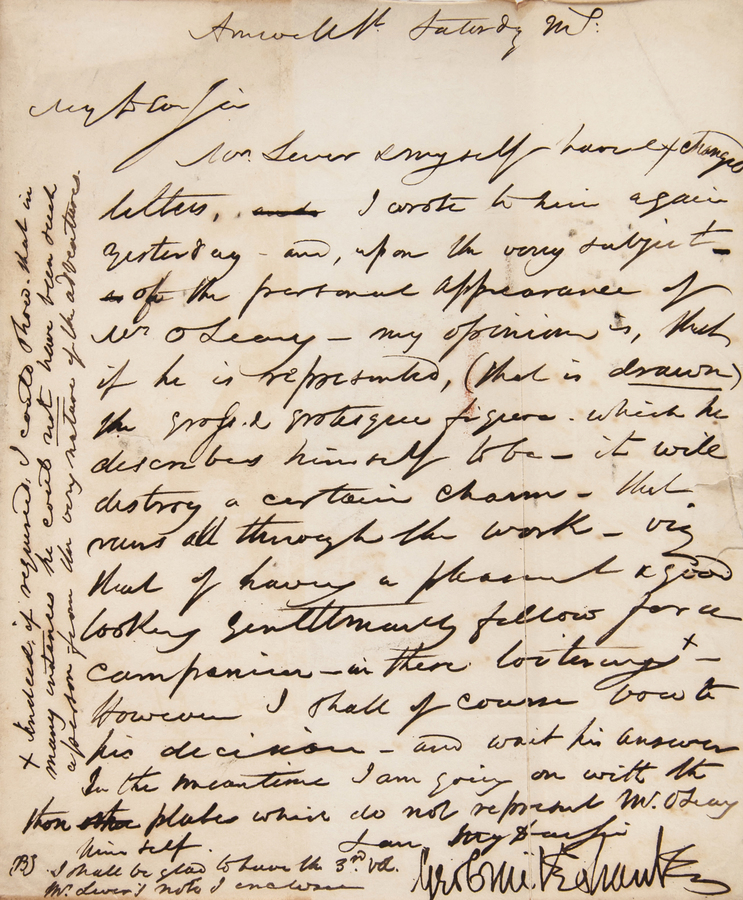 Amwell St. Saturday Mg.
My dear Sir
Mr. Lever & myself have exchanged
letters, and I wrote to him again
yesterday - and, upon the very subject -
as of the personal appearance of
Mr O'Leary - my opinion is, that
if he is represented, (that is drawn)
the gross & grotesque figure - which he
describes himself to be - it will
destroy a certain charm - that
runs all through the work - viz
that of having a pleasant & good
looking Gentlemanly fellow for a
companion - in these loiterings x -
However I shall of course bow to
his decision - and wait his answer
In the meantime I am going on with the
those other plates which do not represent Mr. O'Leary
himself.
I am My Dear Sir
Geo Cruikshank
(PS) I shall be glad to have the 3rd vol.
Mr. Lever's note I enclose
x Indeed, if required, I could show that in
many instances he could not have been such
a person from the very nature of the adventures.